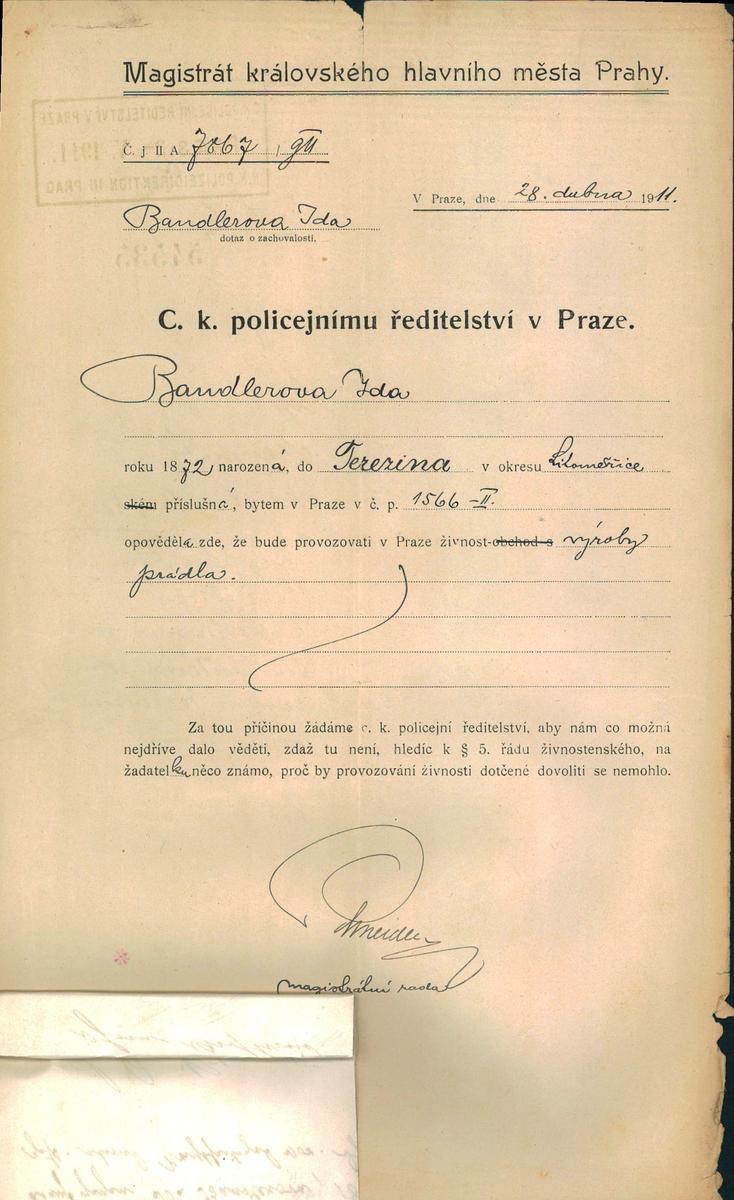 Magistrát královského hlavního města Prahy.
Č. j II A 7067 / VII
V Praze, dne 28. dubna 1911.
Bandlerova Ida
dotaz o zachovalosti.
C. k. policejnímu ředitelství v Praze.
Bandlerova Ida
roku 1872 narozená, do Terezina v okresu Litoměřice
ském příslušná, bytem v Praze v č. p. 1566-II.
opověděla zde, že bude provozovati v Praze živnost-obchod s výroby
prádla.
Za tou příčinou žádáme c. k. policejní ředitelství, aby nám co možná
nejdříve dalo věděti, zdaž tu není, hledíc k § 5. řádu živnostenského, na
žadatelku něco známo, proč by provozování živnosti dotčené dovoliti se nemohlo.
magistrátní rada